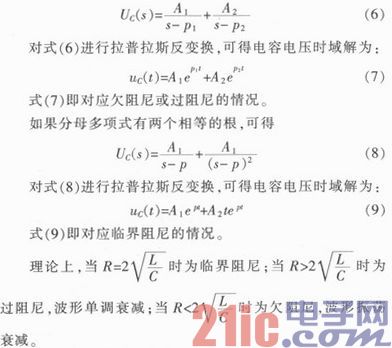 U_C(s)=A_1/(s-p_1)+A_2/(s-p_2) (6)
对式(6)进行拉普拉斯反变换,可得电容电压时域解为:
u_C(t)=A_1e^{p_1t}+A_2e^{p_2t} (7)
式(7)即对应欠阻尼或过阻尼的情况。
如果分母多项式有两个相等的根,可得
U_C(s)=A_1/(s-p)+A_1/(s-p)^2 (8)
对式(8)进行拉普拉斯反变换,可得电容电压时域解为:
u_C(t)=A_1e^{pt}+A_2te^{pt} (9)
式(9)即对应临界阻尼的情况。
理论上,当R=2√(L/C)时为临界阻尼;当R>2√(L/C)时为
过阻尼,波形单调衰减;当R<2√(L/C)时为欠阻尼,波形振荡
衰减。
21ic电子网